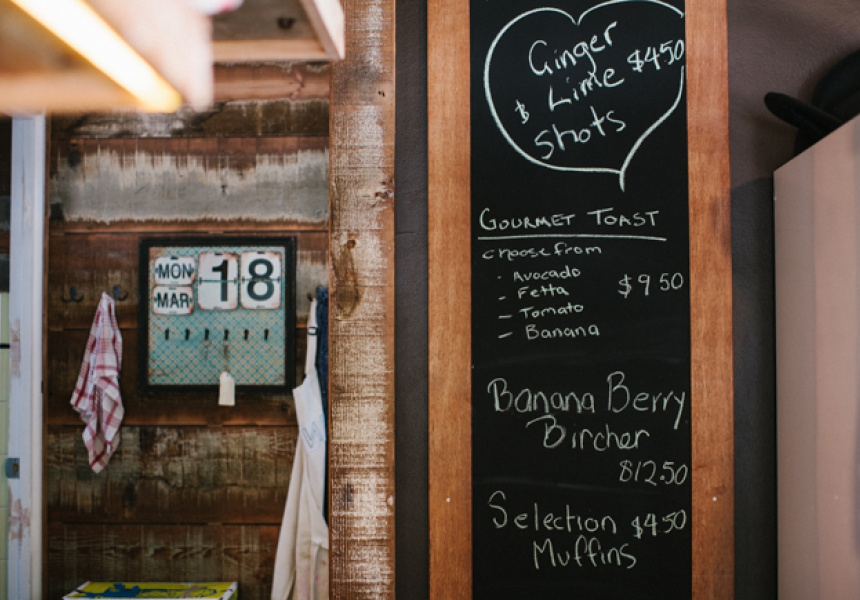 MON
18
MAR
Ginger
$4.50
& Lime
Shots
GOURMET TOAST
choose from
- Avocado
- Fetta
$9.50
- Tomato
- Banana
Banana Berry
Bircher
$12.50
Selection $4.50
Muffins